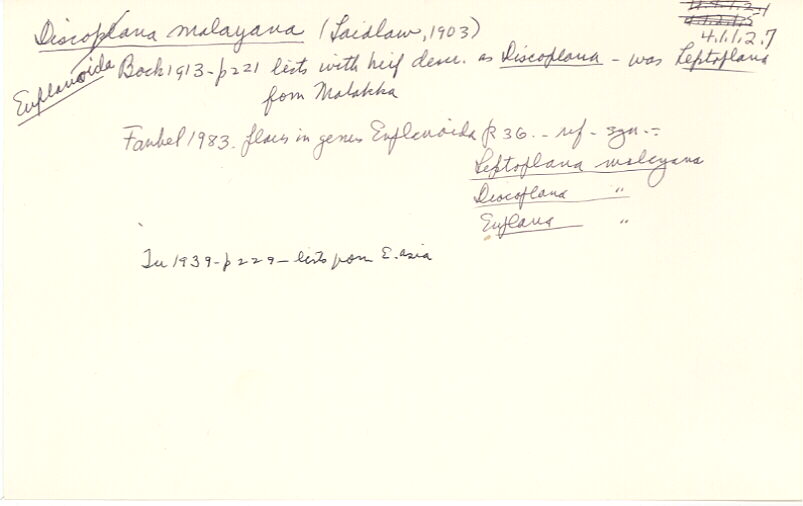 4.1.1.2.1
4.1.2.1.5
4.1.1.2.7
Discoplana malayana (Laidlaw, 1903)
Euplanoida
Bock 1913 - p 221 lists with brif descr. as Discoplana - was Leptoplana
from Malakka
Faubel 1983. places in genus Euplanoida p. 36. - ref - syn. :-
Leptoplana malayana
Discoplana "
Euplana "
Tu 1939 - p 229 - lists from E. asia